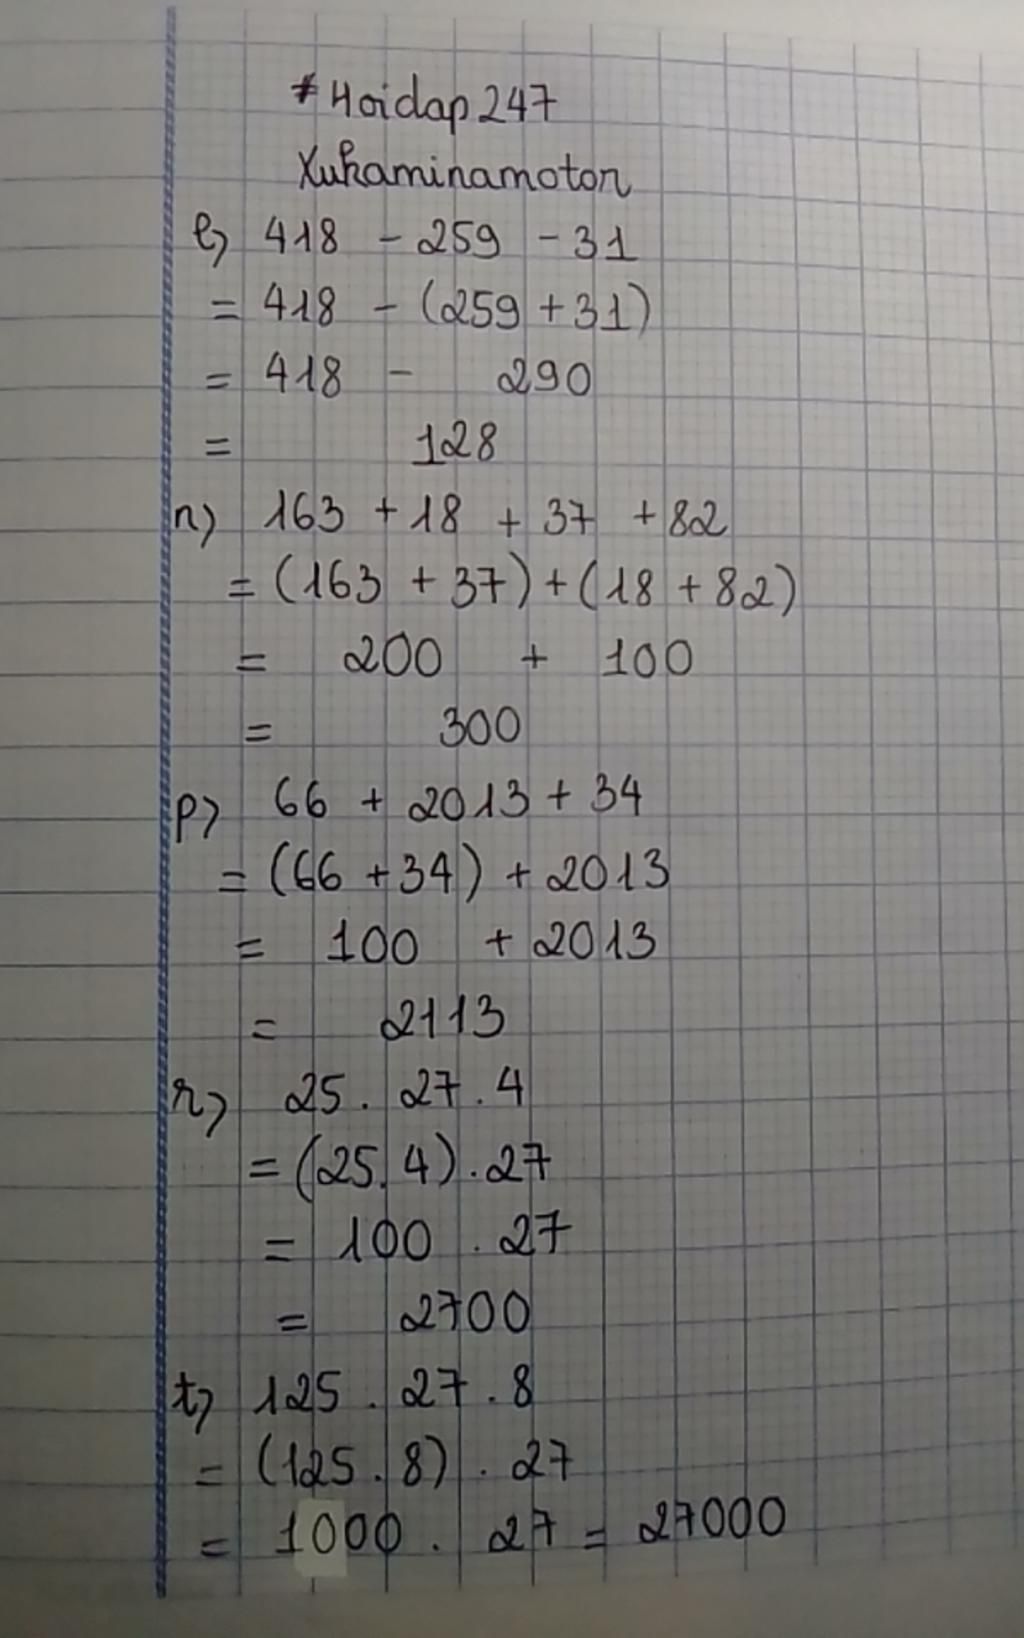 # Hoidap 247
Xukaminamoton
l) 418 - 259 - 31
= 418 - (259 + 31)
= 418 - 290
= 128
n) 163 + 18 + 37 + 82
= (163 + 37) + (18 + 82)
= 200 + 100
= 300
p) 66 + 2013 + 34
= (66 + 34) + 2013
= 100 + 2013
= 2113
r) 25 . 27 . 4
= (25 . 4) . 27
= 100 . 27
= 2700
t) 125 . 27 . 8
= (125 . 8) . 27
= 1000 . 27 = 27000